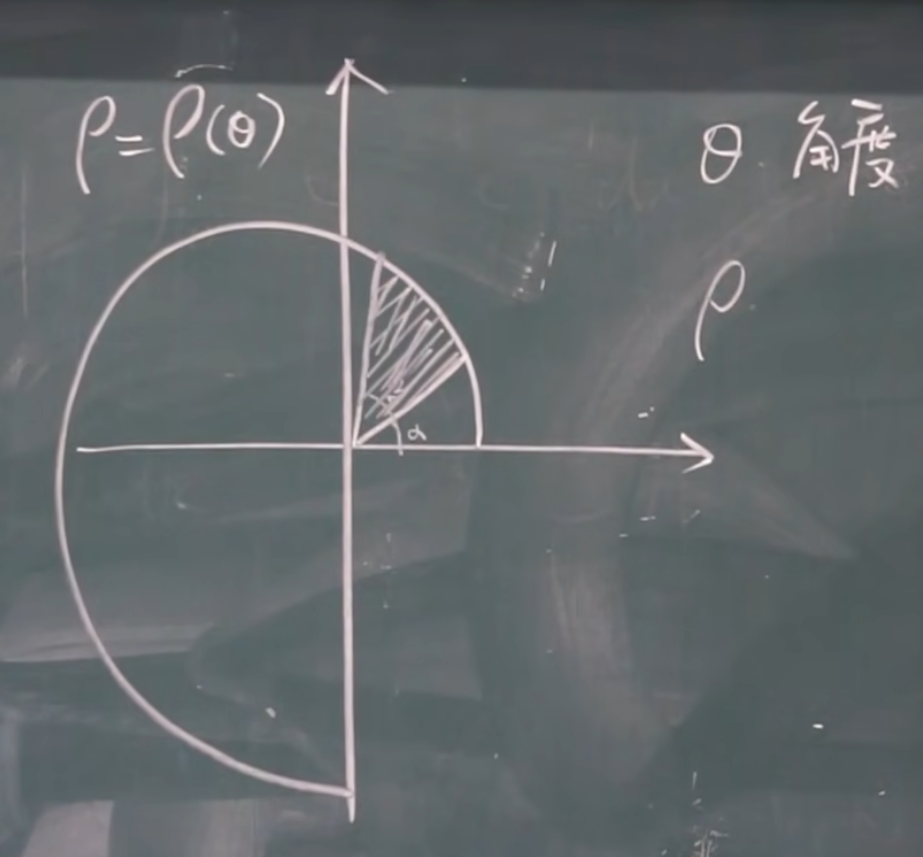 ρ=ρ(θ)
θ 角度
ρ
α